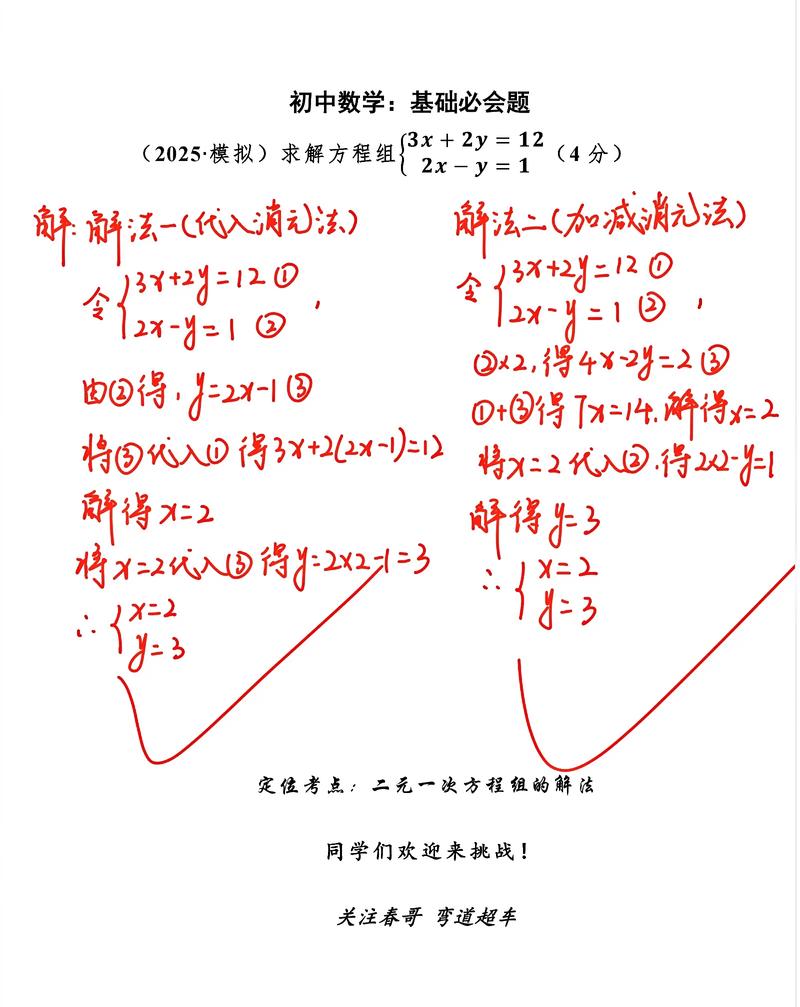 初中数学：基础必会题
（2025·模拟）求解方程组{3x + 2y = 12
2x − y = 1（4 分）
解：解法一(代入消元法)
令{3x+2y=12 ①
2x-y=1 ②，
由②得，y=2x-1 ③
将③代入① 得3x+2(2x-1)=12
解得 x=2
将x=2代入③ 得y=2×2-1=3
∴{x=2
y=3
解法二(加减消元法)
令{3x+2y=12 ①
2x-y=1 ②，
②×2，得4x-2y=2 ③
①+③得 7x=14，解得x=2
将x=2代入②，得2×2-y=1
解得 y=3
∴{x=2
y=3
定位考点：二元一次方程组的解法
同学们欢迎来挑战！
关注春哥 弯道超车